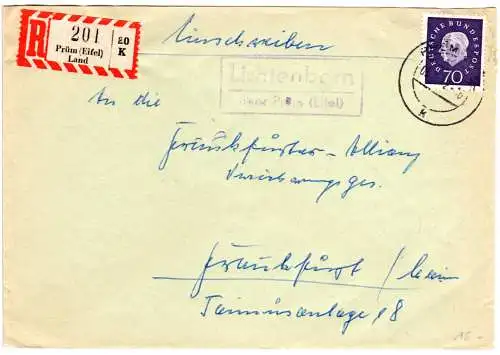 R 201 20 K
Prüm (Eifel)
Land
Einschreiben
DEUTSCHE BUNDESPOST
70
Lichtenborn
über Prüm (Eifel)
k
An die
Frankfurter-Allianz
Versicherungsges.
Frankfurt / Main
Taunusanlage 18